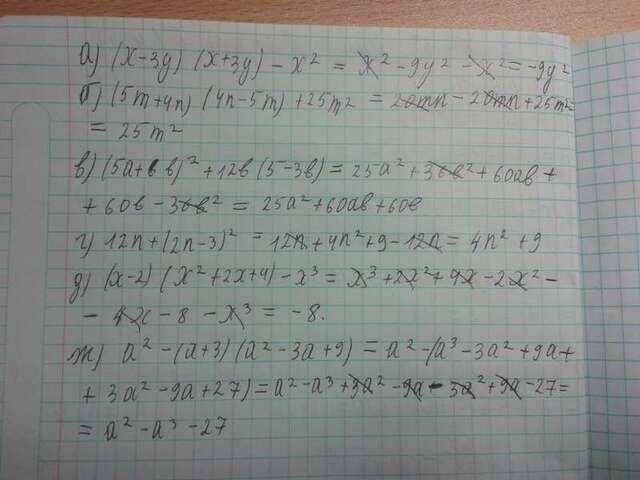 а) (x-3y) (x+3y) - x² = x² - 9y² - x² = -9y²
б) (5m+4n) (4n-5m) + 25m² = 20mn - 20mn + 25m² =
= 25m²
в) (5a+6в)² + 12в (5-3в) = 25a² + 36в² + 60aв +
+ 60в - 36в² = 25a² + 60aв + 60в
г) 12n + (2n-3)² = 12n + 4n² + 9 - 12n = 4n² + 9
д) (x-2) (x² + 2x + 4) - x³ = x³ + 2x² + 4x - 2x² -
- 4x - 8 - x³ = -8.
ж) a² - (a+3) (a² - 3a + 9) = a² - (a³ - 3a² + 9a +
+ 3a² - 9a + 27) = a² - a³ + 3a² - 9a - 3a² + 9a - 27 =
= a² - a³ - 27